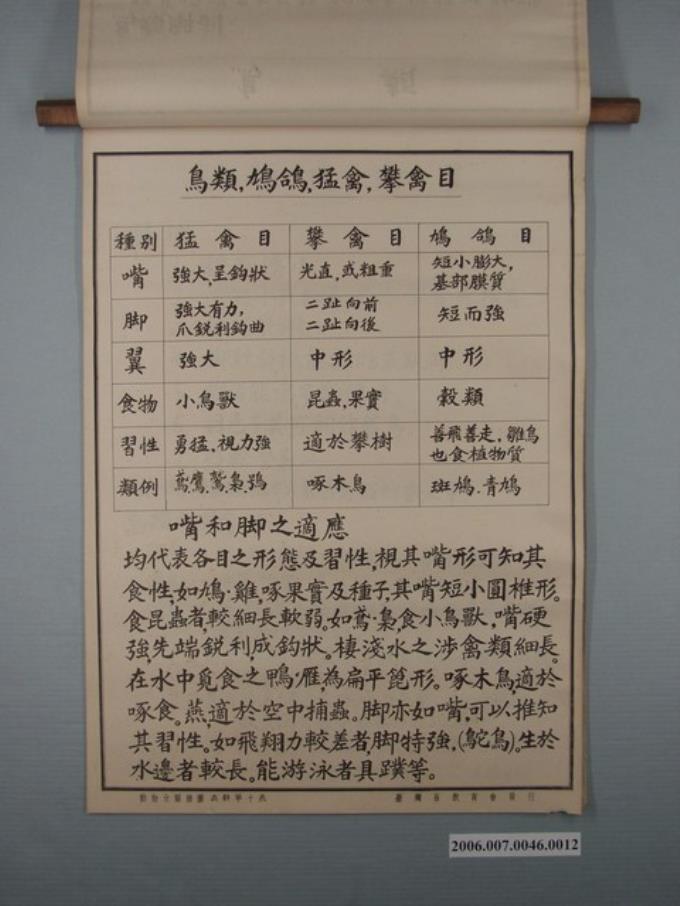 鳥類,鳩鴿,猛禽,攀禽目
種別 猛禽目 攀禽目 鳩鴿目
嘴 強大,呈鈎狀 光直,或粗重 短小膨大,基部膜質
脚 強大有力,爪銳利鈎曲 二趾向前二趾向後 短而強
翼 強大 中形 中形
食物 小鳥獸 昆蟲,果實 穀類
習性 勇猛,視力強 適於攀樹 善飛善走,雛鳥也食植物质
類例 鳶,鷹,鷲,梟,鴞 啄木鳥 斑鳩.青鳩
嘴和脚之適應
均代表各目之形態及習性,視其嘴形可知其
食性,如鳩·雞,啄果實及種子,其嘴短小圓椎形。
食昆蟲者,較細長軟弱。如鳶·梟,食小鳥獸,嘴硬
強,先端銳利,成鈎狀。棲淺水之涉禽類細長。
在水中覓食之鴨·雁,為扁平箆形。啄木鳥,適於
啄食。燕,適於空中捕蟲。脚亦如嘴,可以推知
其習性。如飛翔力較差者,脚特強,(鴕鳥)。生於
水邊者較長。能游泳者具蹼等。
臺灣省教育會發行
2006.007.0046.0012